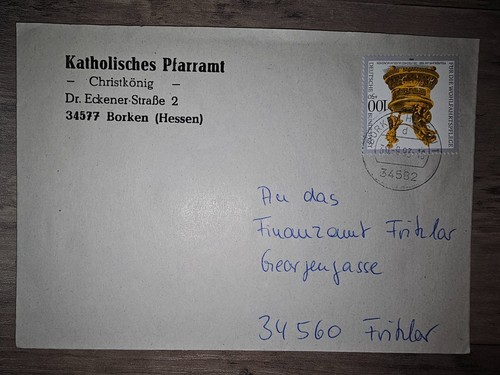 Katholisches Pfarramt
— Christkönig —
Dr. Eckener-Straße 2
34577 Borken (Hessen)
FÜR DIE WOHLFAHRTSPFLEGE
100
DEUTSCHE BUNDESPOST
BORKEN
d
34582
An das
Finanzamt Fritzlar
Georgengasse
34560 Fritzlar